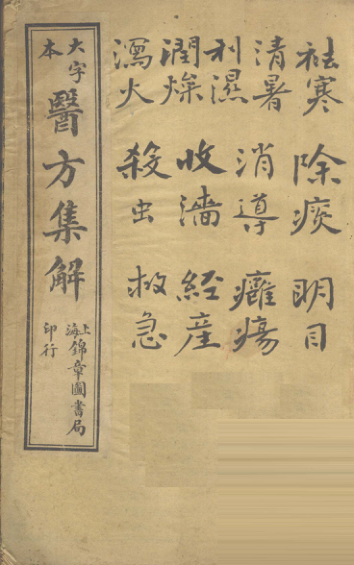 祛寒
清暑
利濕
潤燥
瀉火
除痰
消導
收濇
殺虫
明目
癰瘍
経産
救急
大字本
醫方集解
上海錦章圖書局
印行